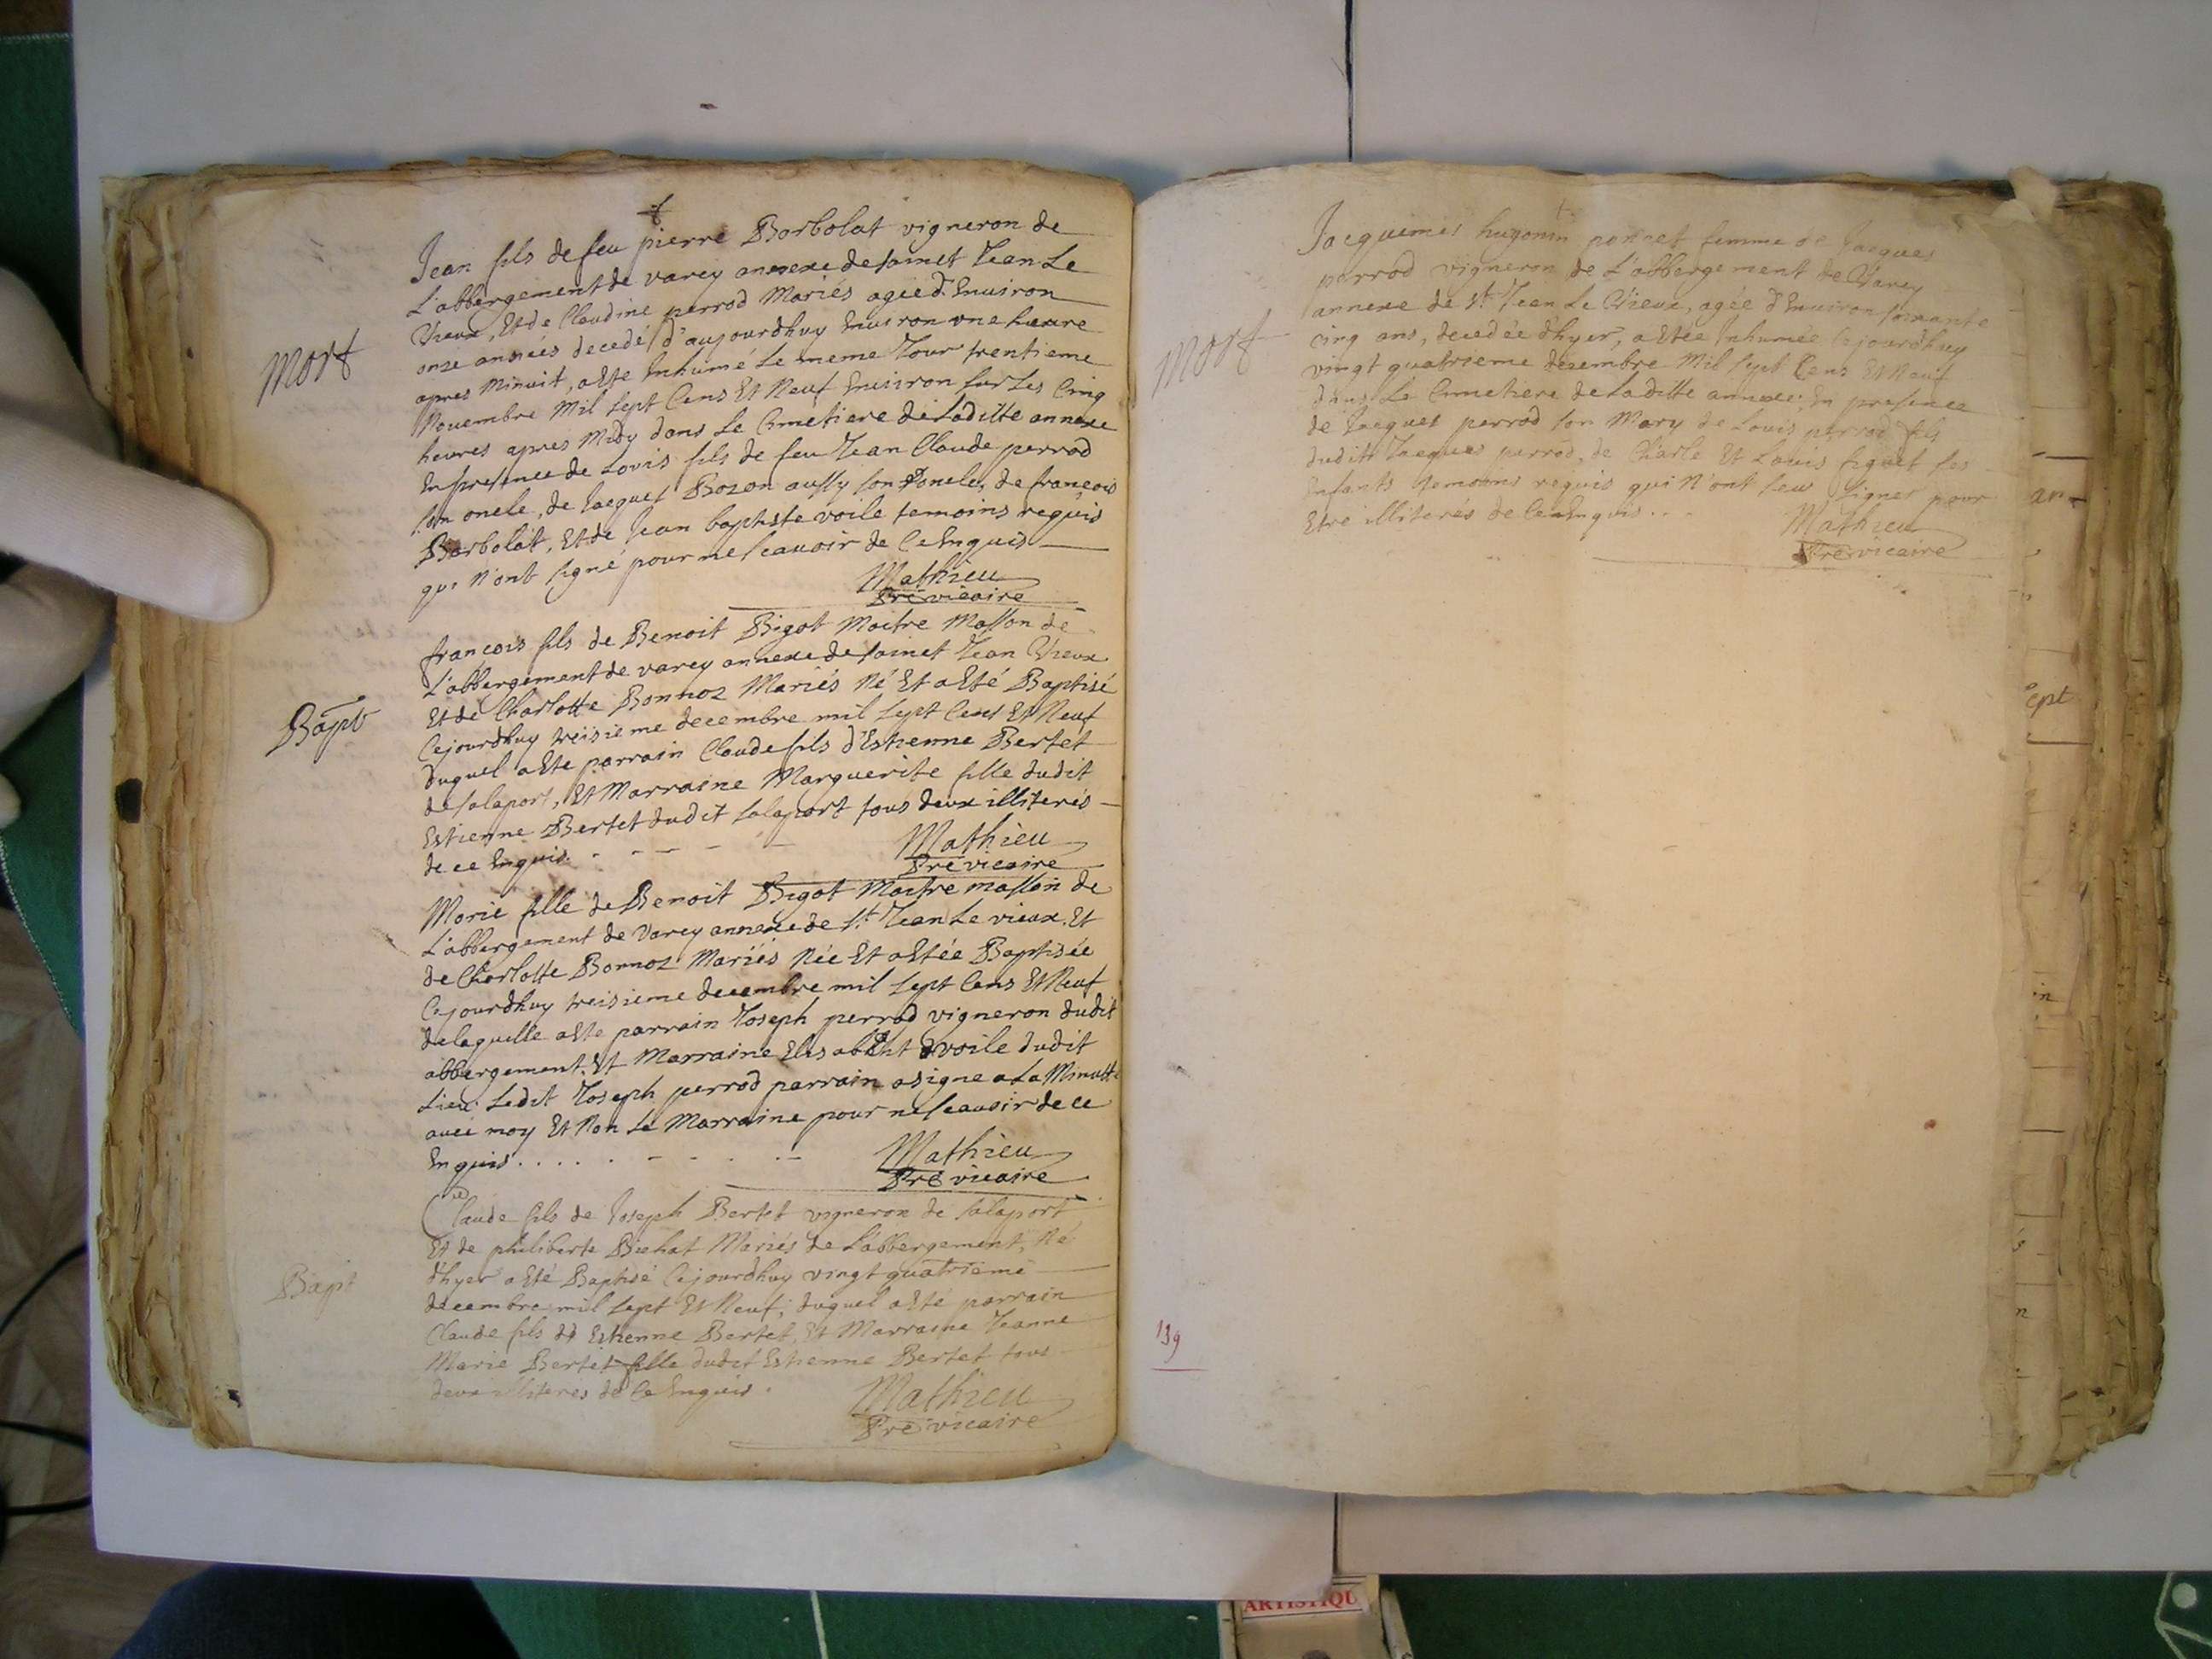 Jean fils de feu pierre Borbolat vigneron de
L'abbergement de varey annexe de sainct Jean Le
Vieux, Et de Claudine perrod Mariés agée d'Enuiron
onze années decedé d'aujourdhuy Enuiron vne heure
Mort
apres Minuit, a Este Enhumé Le meme Jour trentieme
Nouembre Mil sept Cens Et Neuf Enuiron sur Les Cinq
heures apres Midy dans Le Cimetiere de Laditte annexe
En presence de Lovis fils de feu Jean Claude perrod
son oncle, de Jacques Bozon aussy son oncle, de françois
Borbolat, Et de Jean baptiste voile temoins requis
qui N'ont signé pour ne scauoir de Ce Enquis
Mathieu
Pre vicaire
françois fils de Benoit Bigot Maitre Masson de
L'abbergement de varey annexe de sainct Jean Vieux
Et de Charlotte Bonnoz Mariés Né Et a Eté Baptisé
Bapt
Cejourdhuy treisieme decembre mil sept Cens Et Neuf
duquel a Ete parrain Claude fils d'Estienne Bertet
de salaport, Et Marraine Marguerite fille dudit
Estienne Bertet dudit salaport tous deux illiterés
de ce Enquis.
Mathieu
Pre vicaire
Marie fille de Benoit Bigot Maitre masson de
L'abbergement de Varey annexe de St Jean Le vieux, Et
de Charlotte Bonnoz Mariés Née Et a Etée Baptisée
Cejourdhuy treisieme decembre mil sept Cens Et Neuf
de laquelle a Ete parrain Joseph perrod vigneron dudit
abbergement, Et Marraine Elisabeht voile dudit
Lieu Ledit Joseph perrod parrain a signe a La Minutte
auec moy Et Non La Marraine pour ne scauoir de ce
Enquis . . . . .
Mathieu
Pre vicaire
Claude fils de Joseph Bertet vigneron de salaport
Et de philiberte Bichat Mariés de L'abbergement, Né
d'hyer a Eté Baptisé Cejourdhuy vingt quatrieme
Bapt
decembre mil sept Et Neuf, duquel a Eté parrain
Claude fils d' Estienne Bertet, Et Marraine Jeanne
Marie Bertet fille dudit Estienne Bertet tous
deux illiteres de Ce Enquis.
Mathieu
Pre vicaire
Jacquemes hugonin poncet femme de Jacques
perrod vigneron de L'abbergement de Varey
annexe de St Jean Le Vieux, agée d'Enuiron soixante
Mort
cinq ans, decedée d'hyer, a Etée Inhumée Cejourdhuy
vingt quatrieme decembre Mil sept Cens Et Neuf
dans Le Cimetiere de Laditte annexe, En presence
de Jacques perrod son Mary de Louis perrod fils
dudit Jacques perrod, de Charle Et Louis figuet ses
Enfants temoins requis qui N'ont sceu signer pour
Etre illiterés de Ce Enquis . . .
Mathieu
Pre vicaire
139
an
ept
in
ARTISTIQU